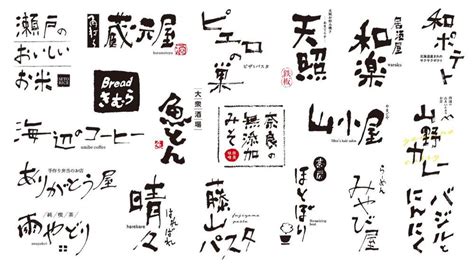 瀬戸の
おいしい
お米
SETO
RICE
蔵元屋
kuramotoya
ピエロ
の
巣
ピザとパスタ
天照
鉄板
居酒屋
和楽
waraku
和ポテト
Bread
きむら
大衆酒場
魚とん
海辺のコーヒー
umibe coffee
奈良の
無添加
みそ
山小屋
山野
カレー
ありがとう屋
手作り弁当のお店
晴々
はればれ
harebare
藤山
パスタ
fujiyama
pasta
茶房
ほとぼり
らーめん
みやび屋
バジルと
にんにく
純喫茶
雨やどり
amayadori